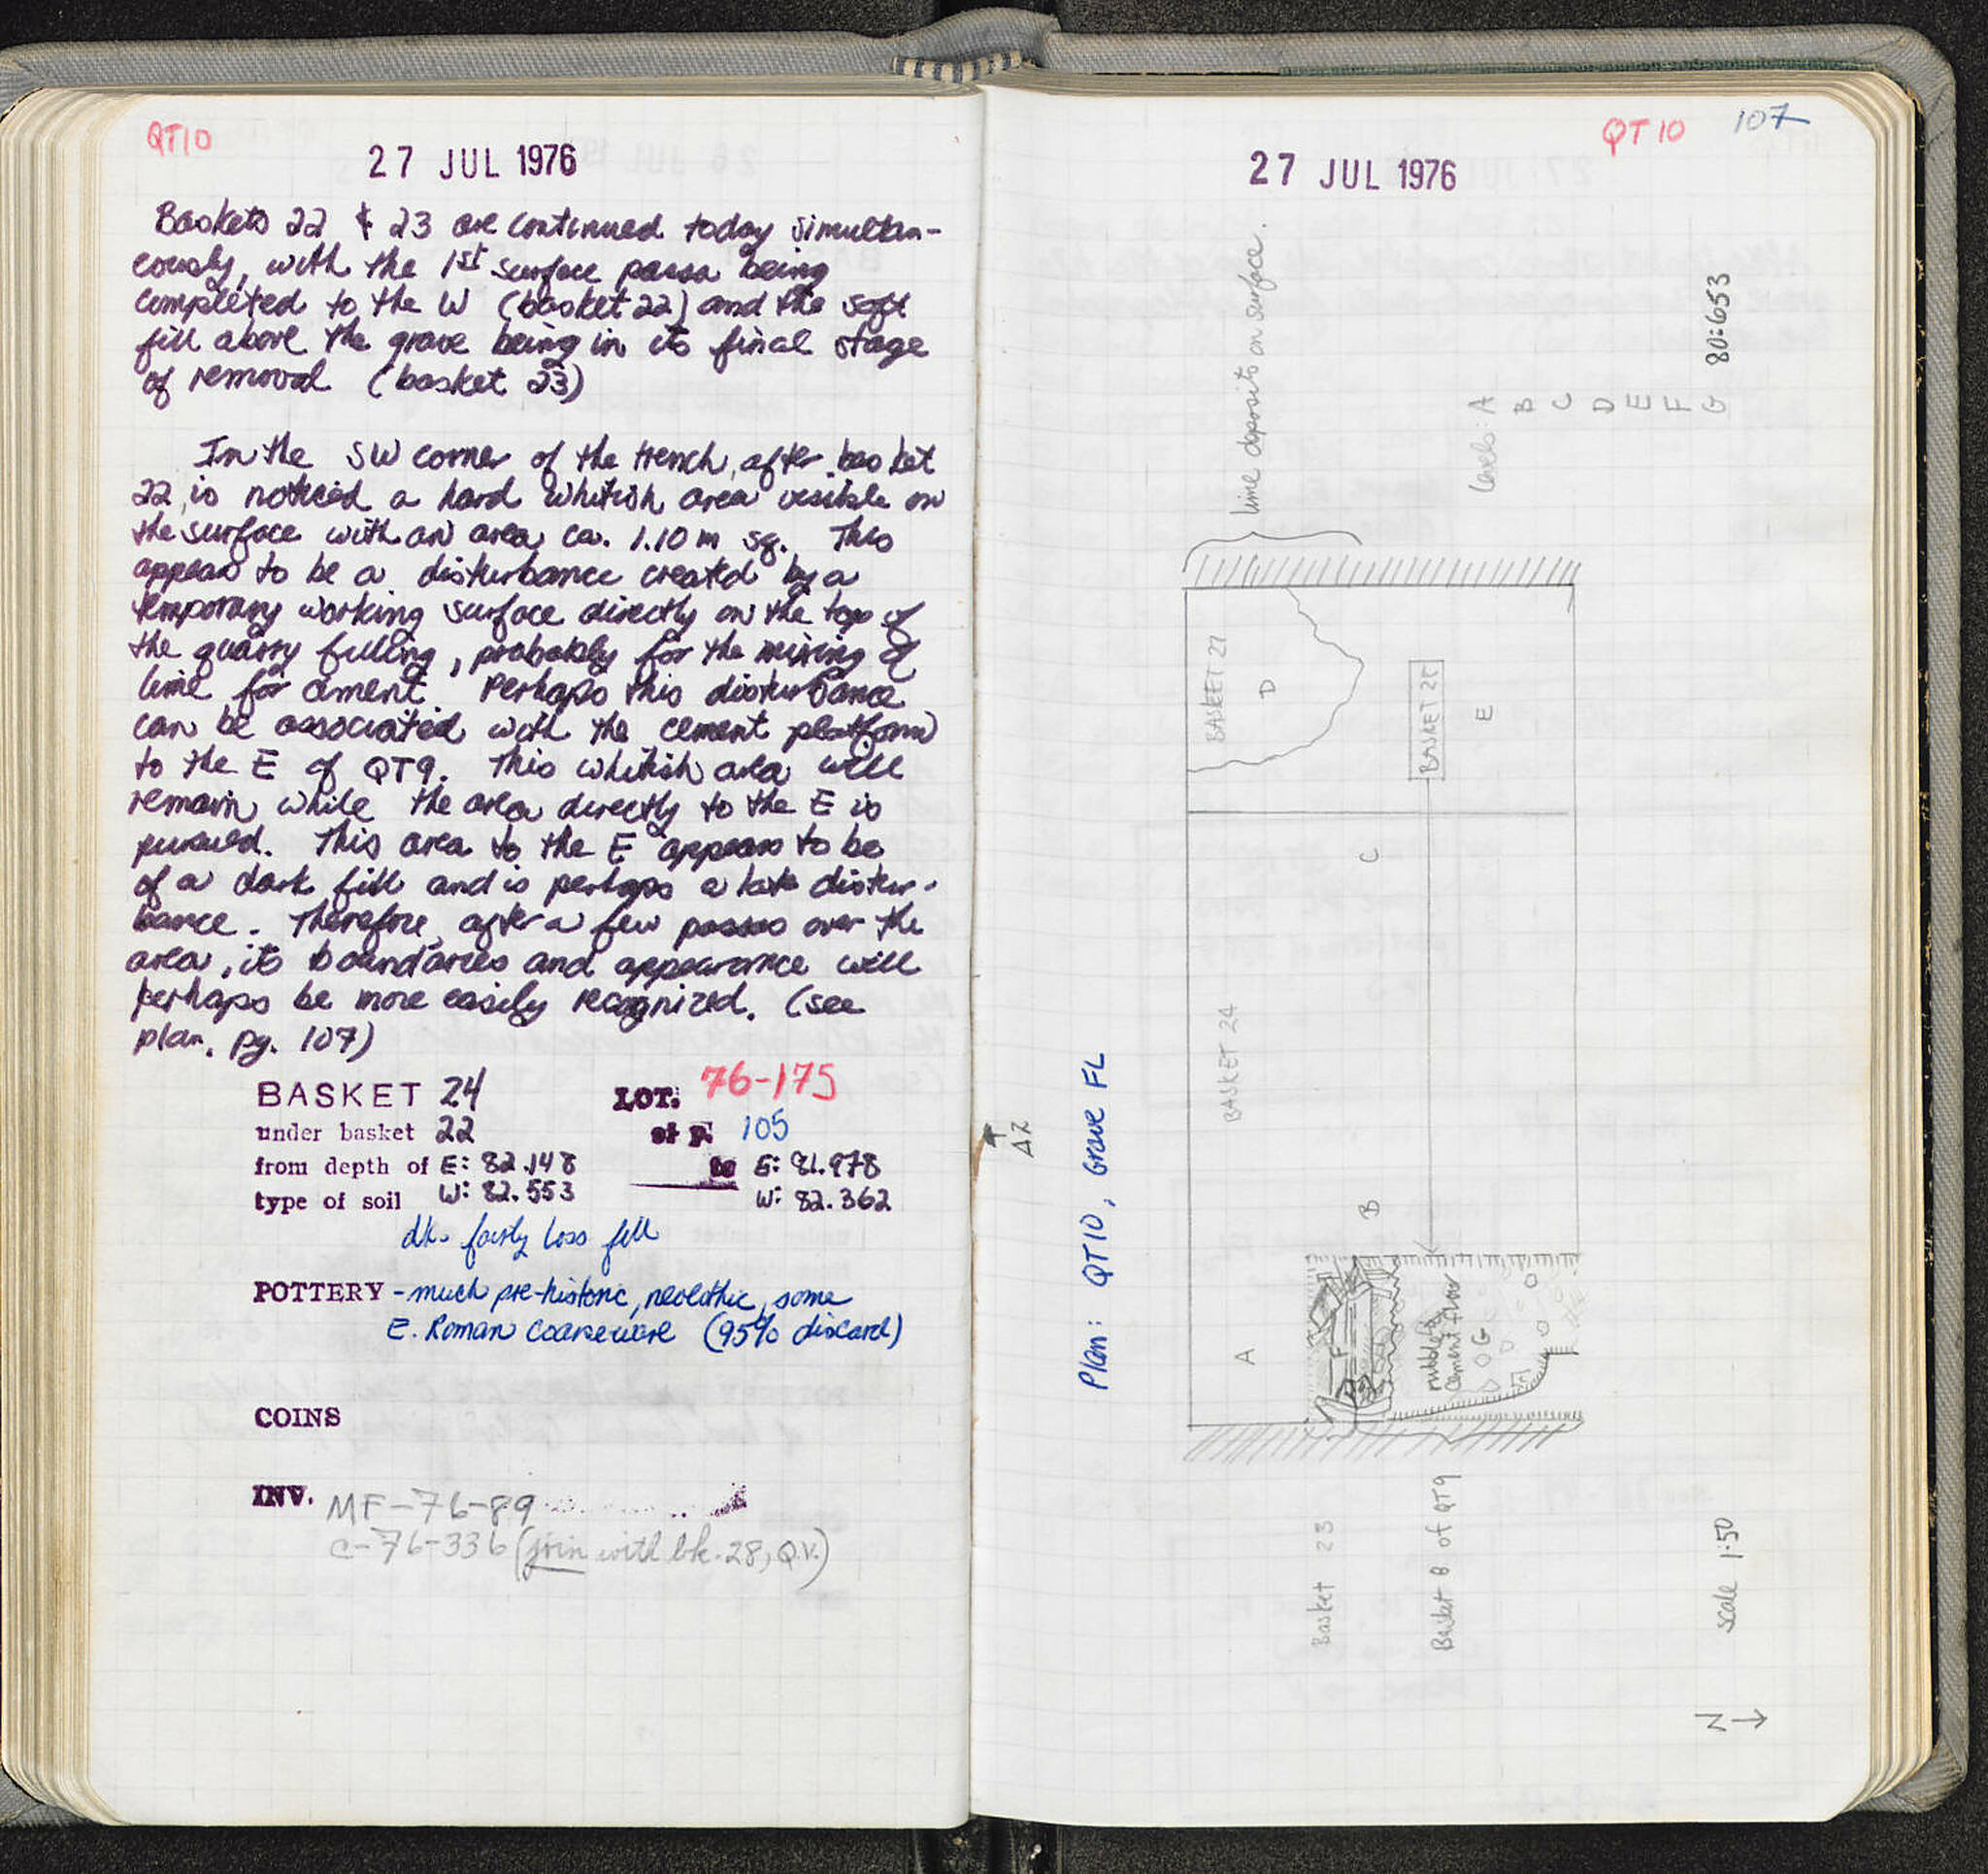 QT10
27 JUL 1976
Baskets 22 & 23 are continued today simultan-
eously, with the 1st surface passa being
completed to the W (basket 22) and the soft
fill above the grave being in its final stage
of removal (basket 23)
In the SW corner of the trench, after basket
22, is noticed a hard whitish area visible on
the surface with an area ca. 1.10 m sq. This
appears to be a disturbance created by a
temporary working surface directly on the top of
the quarry filling, probably for the mixing of
lime for cement. Perhaps this disturbance
can be associated with the cement platform
to the E of QT9. This whitish area will
remain while the area directly to the E is
pursued. This area to the E appears to be
of a dark fill and is perhaps a late distur-
bance. Therefore, after a few passes over the
area, its boundaries and appearance will
perhaps be more easily recognized. (see
plan, pg. 107)
BASKET 24 LOT: 76-175
under basket 22 of p. 105
from depth of E: 82.148 to E: 81.978
type of soil W: 82.553 W: 82.362
dk. fairly loss fill
POTTERY - much pre-historic, neolithic, some
E. Roman coarseware (95% discard)
COINS
INV. MF-76-89
C-76-336 (join with bk. 28, Q.V.)
QT10 107
27 JUL 1976
Plan: QT10, Grave FL
lime deposits on surface.
Levels: A
B
C
D
E
F
G 80.653
BASKET 27
D
BASKET 25
E
C
BASKET 24
B
A
F
rubble &
cement floor
G
Basket 23
Basket 8 of QT9
scale 1:50
N